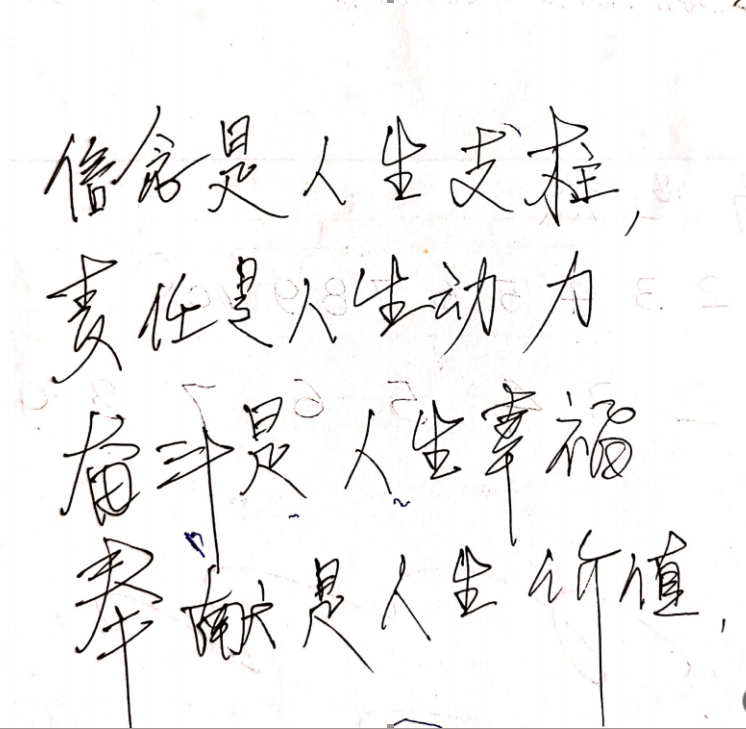 信念是人生支柱,
责任是人生动力
奋斗是人生幸福
奉献是人生价值.